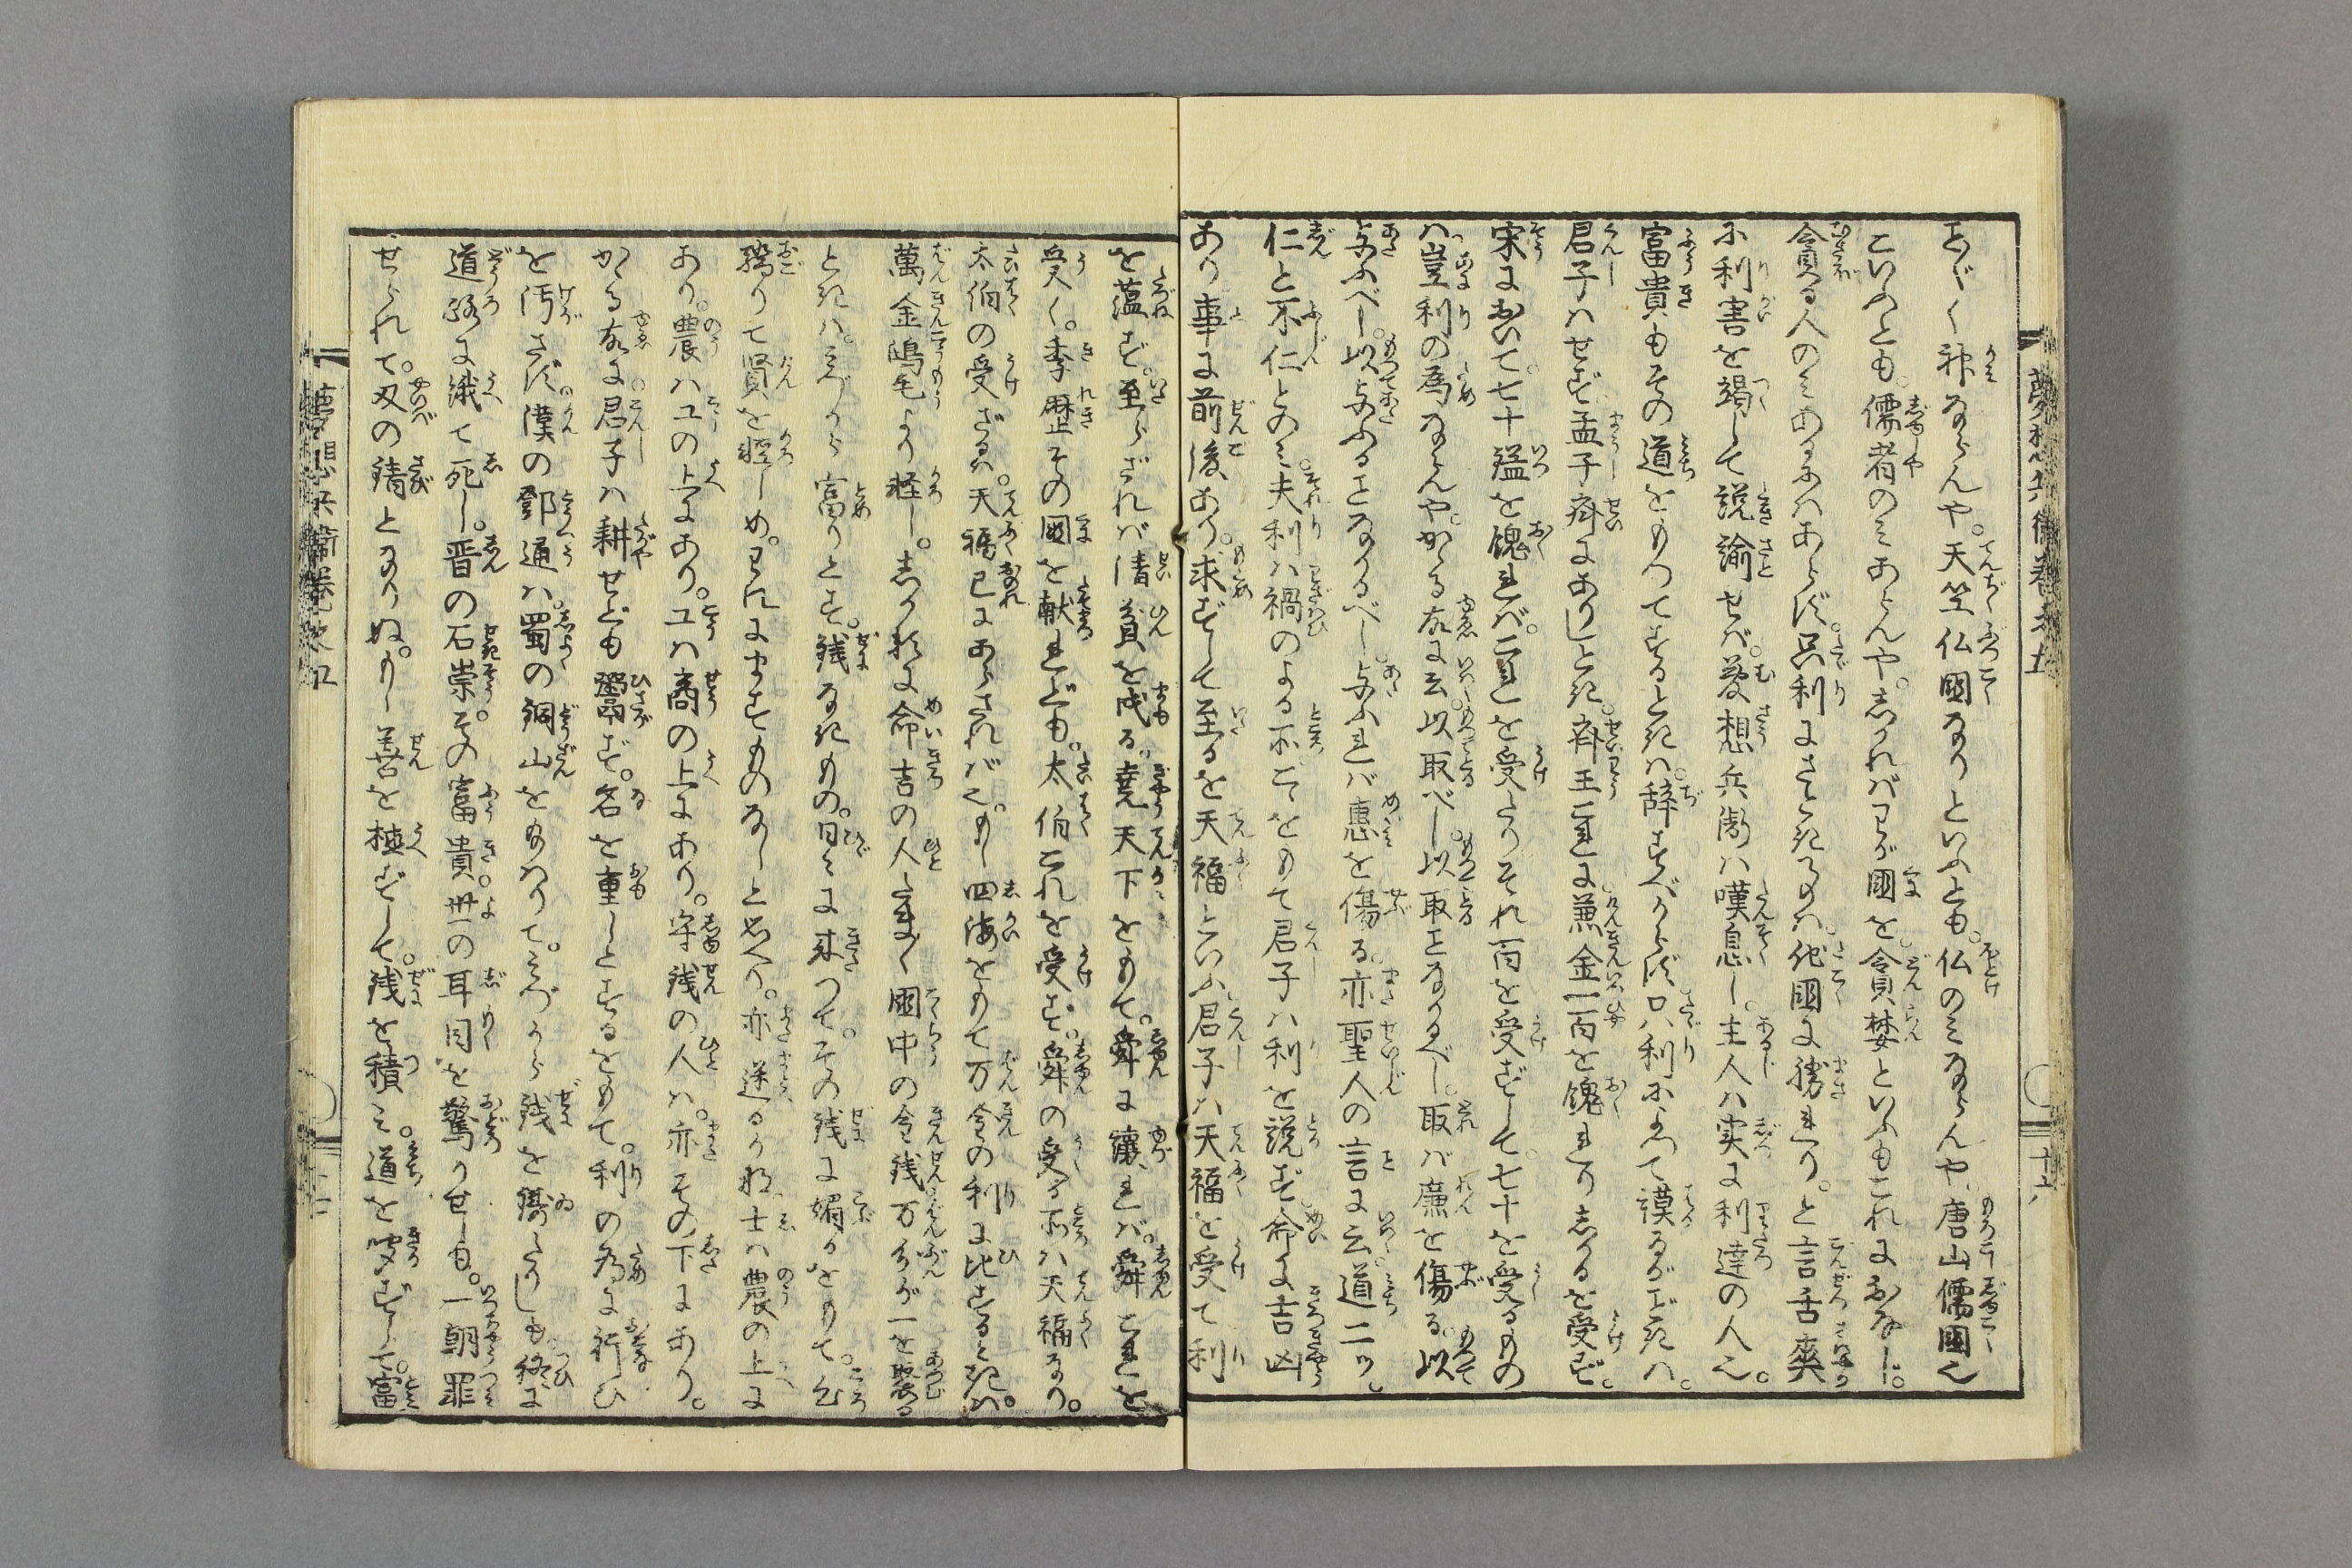 夢想兵衛巻之五
十六
とく〳〵神ならんや。天竺仏國なりといふとも。仏のみならんや、唐山儒國と
いふとも。儒者のみあらんや。しかればわが國を。貪婪といふもこれにおなじ。
貪る人のみあるにはあらず。只利にさときものは。他國に勝れり。と言舌爽
に利害を竭して説諭せば。夢想兵衛は嘆息し。主人は実に利達の人也。
富貴もその道をもつてするときは。辞すべからず。只利によつて謀るがごときは。
君子はせず孟子斉にありしとき。斉王これに兼金一百を餽れりしかるを受ず。
宋において。七十鎰を餽れば。これを受たりそれ百を受ずして。七十を受るもの
は豈利の為ならんや。かゝる故に云。以取べし。以取ことなかるべし。取ば廉を傷る。以
与ふべし。以与ふることなかるべし。与ふれば惠を傷る。亦聖人の言に云。道二ツ。
仁と不仁とのみ。夫利は禍のよる所こゝをもて君子は利を説ず。命に吉凶
あり事に前後あり。求ずして至るを天福といふ君子は天福を受て利
を蕰ず。至らざれば清貧を成る。堯天下をもて。舜に讓れば。舜これを
受く。季歴その國を献れども。太伯これを受ず。舜の受る所は天福なり。
太伯の受ざるは。天福己にあらざれば也。もし四海をもて万金の利に比するときは。
萬金鴻毛より軽し。しかるに命吉の人たま〳〵國中の金銭万分が一を聚る
ときは。みづから富りとす。銭なきもの。日々に来つて。その銭に媚るをもて。己
驕りて賢を軽しめ。われにますものなしと思へり。亦迷るかな士は農の上に
あり。農は工の上にあり。工は商の上にあり。守銭の人は。亦その下にあり。
かゝる故に。君子は耕せども鬻ず。名を重しとするをもて。利の為に行ひ
を汚さず。漢の鄧通は。蜀の銅山を給はりて。みづから銭を鋳たりしも。終に
道路に餓て死し。晋の石崇。その富貴。世の耳目を驚かせしも。一朝罪
せられて。刄の錆となりぬ。もし善を植ずして。銭を積み。道を聞ずして。富
夢想兵衛巻之五